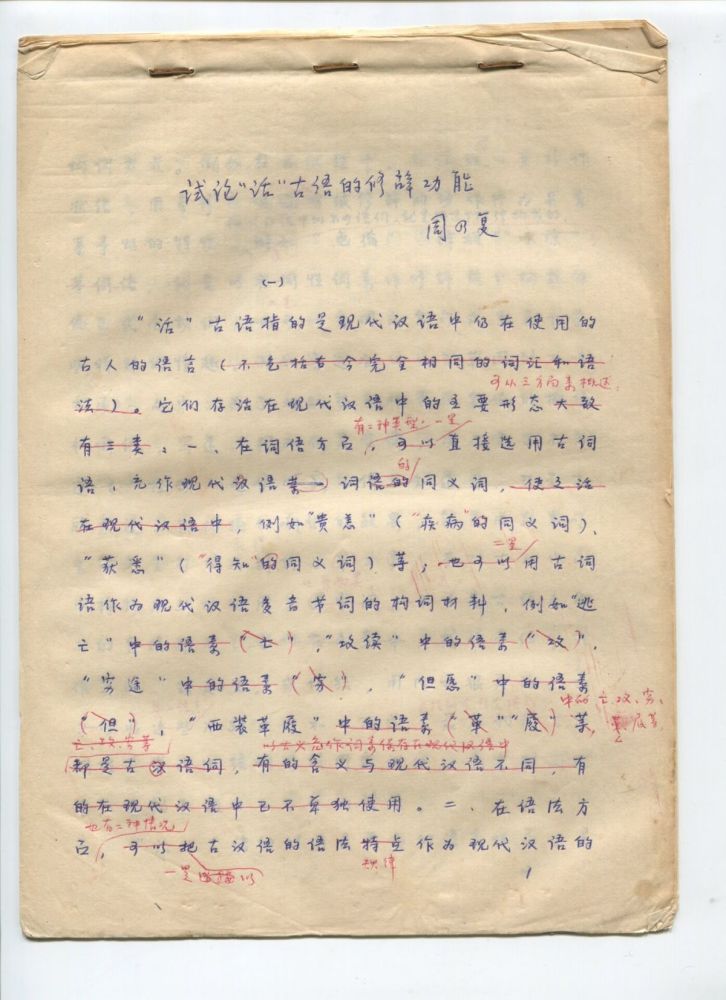 试论“活”古语的修辞功能
周乃复
（一）
“活”古语指的是现代汉语中仍在使用的
古人的语言（不包括古今完全相同的词汇和语
可从三方面来概述：
法）。它们存活在现代汉语中的主要形态大致
有二种类型：一是
有三类：一、在词语方面，可以直接选用古词
的
语，充作现代汉语某一词语的同义词，使之活
在现代汉语中，例如“贵恙”（“疾病”的同义词）、
二是
“获悉”（“得知”的同义词）等；也可以用古词
语作为现代汉语多音节词的构词材料，例如“逃
亡”中的语素（“亡”），“攻读”中的语素（“攻”），
“穷途”中的语素（“穷”），“但愿”中的语素
中的亡、攻、穷、
（“但”），“西装革履”中的语素（“革”“履”）等，
革履等
亡、攻、穷等
都是古汉语词，有的含义与现代汉语不同，有
的在现代汉语中已不单独使用。二、在语法方
也有二种情况
面，可以把古汉语的语法特点作为现代汉语的
规律
一是
1